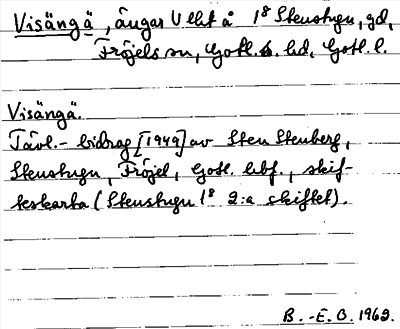 Visängä, ängar V ehk å 1⁸ Stenstugu, gd,
Fröjels sn, Gotl. s. hd, Gotl. l.
Visängä.
Tävl.-bidrag [1949] av Sten Stenberg,
Stenstugu, Fröjel, Gotl. hbf., skif-
teskarta (Stenstugu 1⁸ 2:a skiftet).
B.-E. O. 1969.